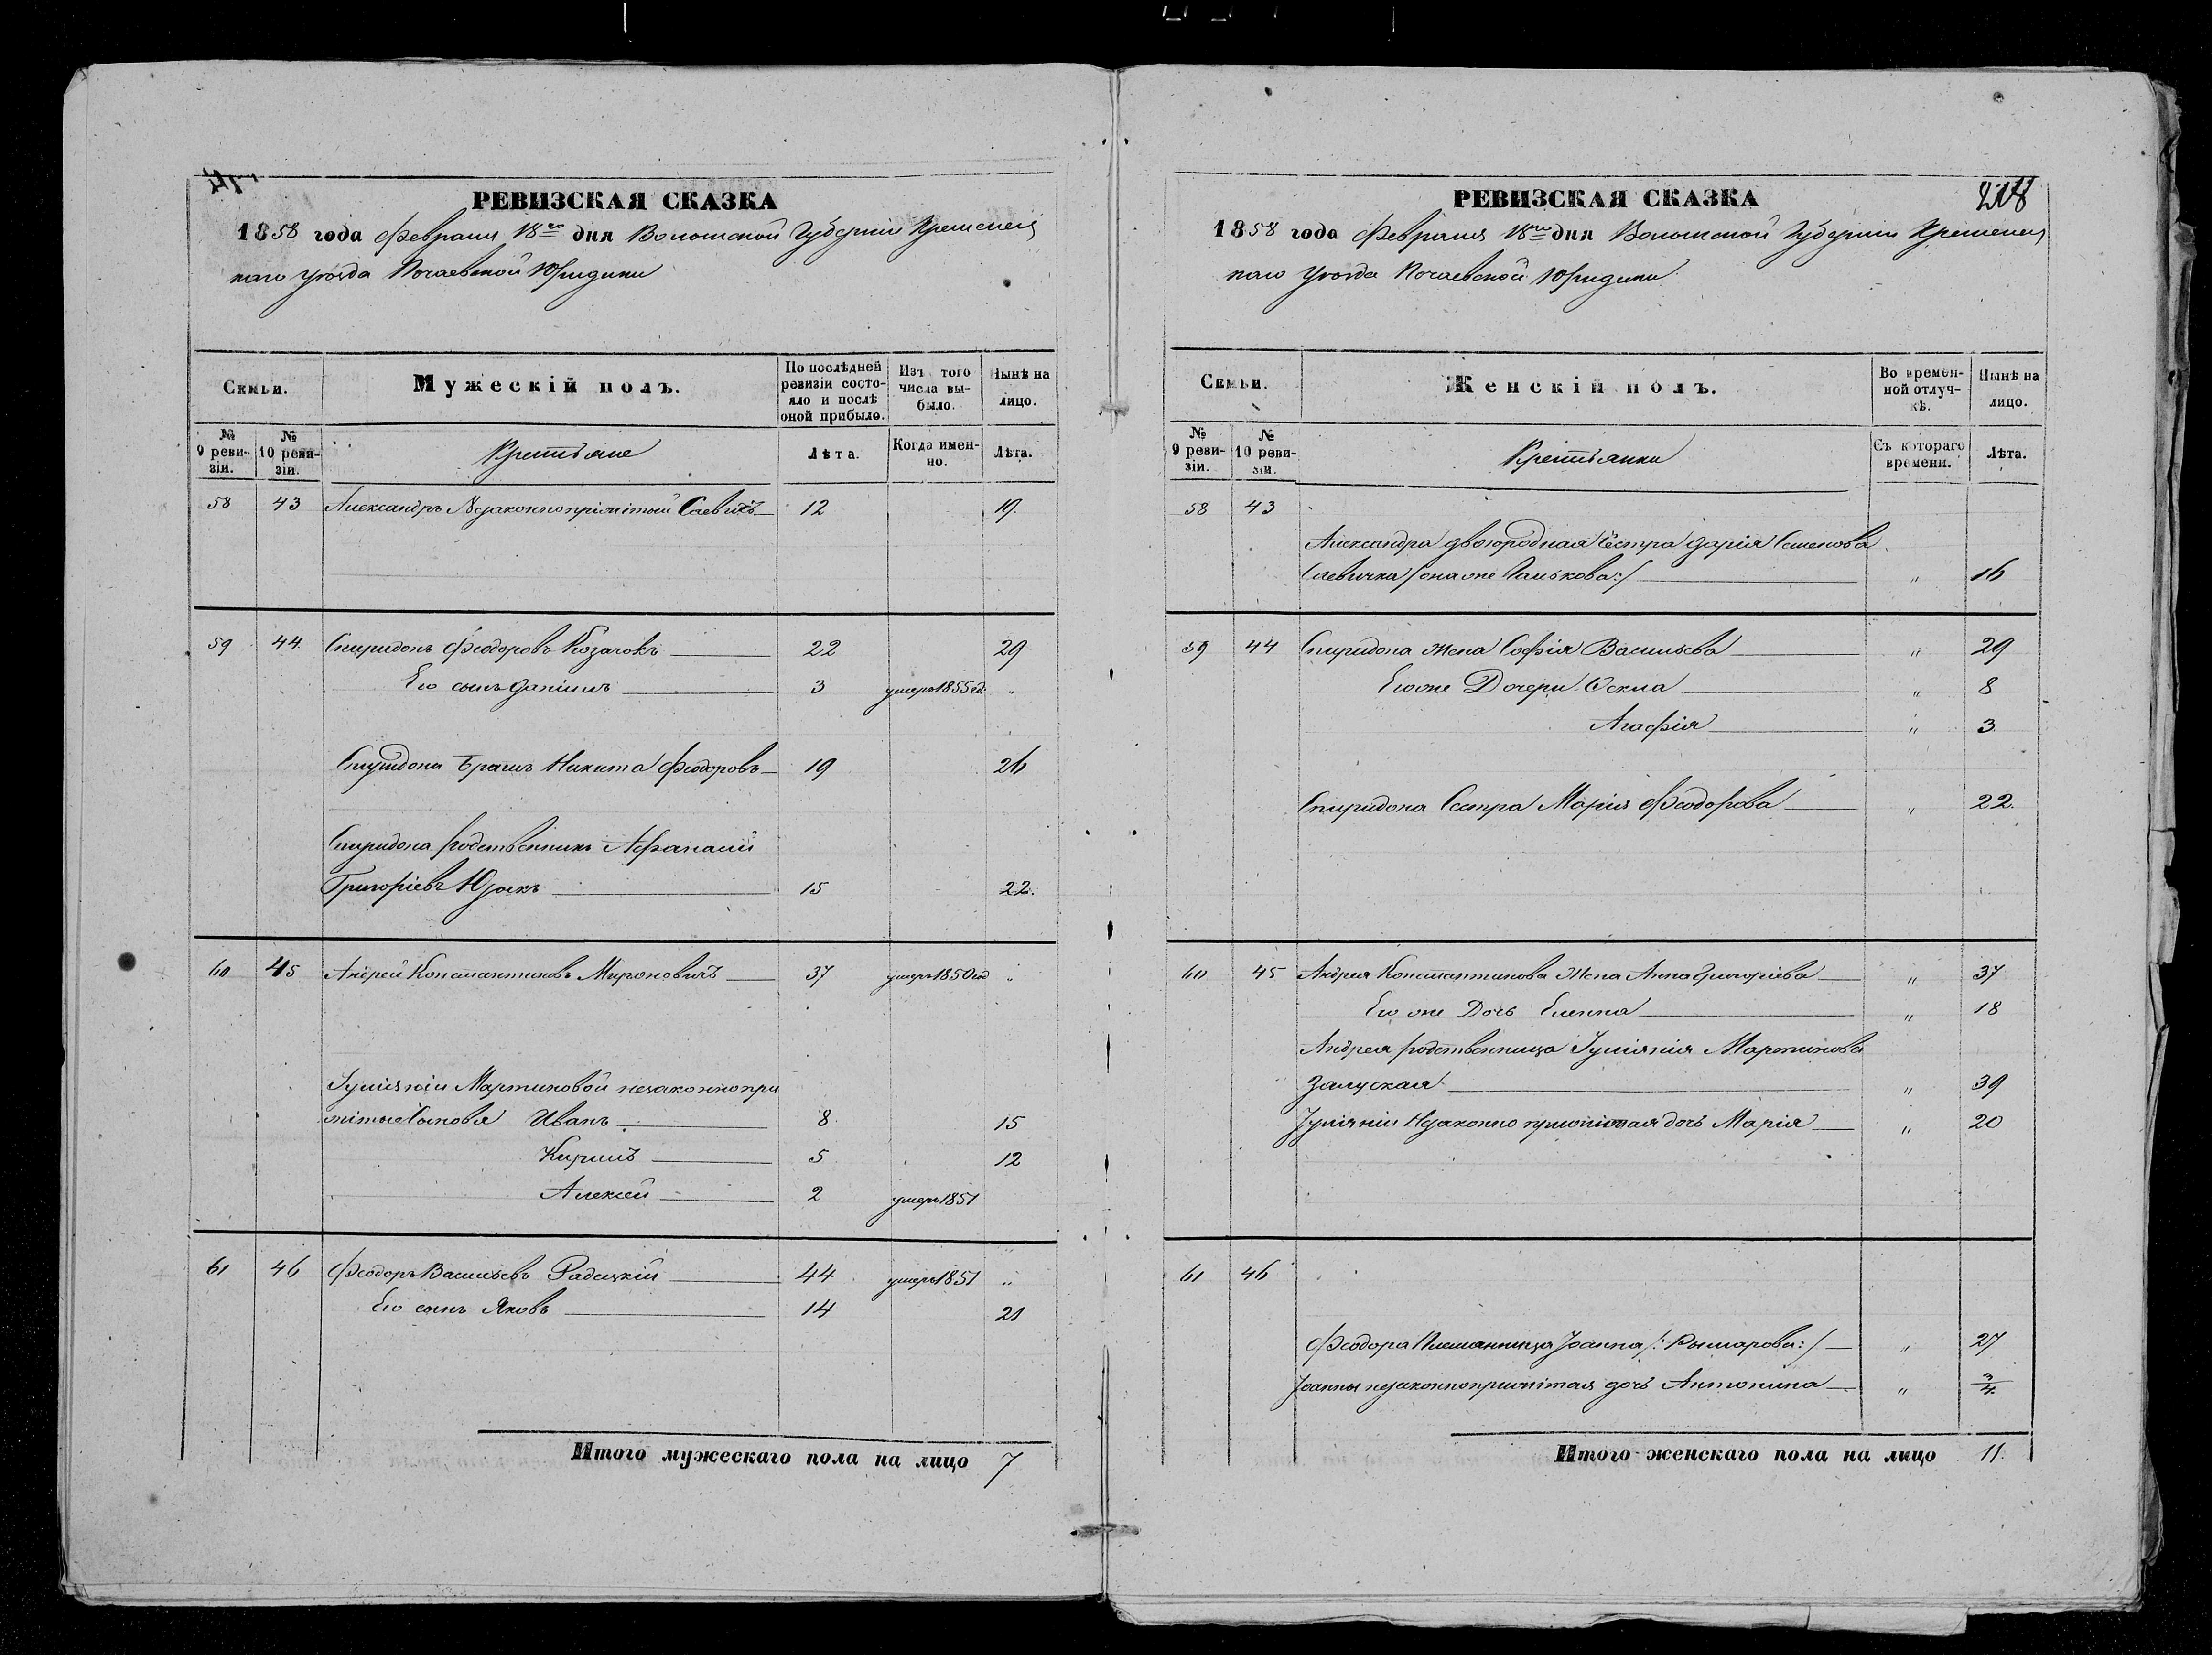 РЕВИЗСКАЯ СКАЗКА
1858 года Февраля 18го дня Волынской Губерніи Кременец
каго уѣзда Почаевской Юридики
Семьи.
Мужескій полъ.
По послѣдней ревизіи состояло и послѣ оной прибыло.
Изъ того числа выбыло.
Нынѣ на лицо.
№ 9 ревизіи.
№ 10 ревизіи.
Крестьяне
Лѣта.
Когда именно.
Лѣта.
58 43 Александръ Незаконноприжитый Саевичъ 12 19
59 44 Спиридонъ Феодоровъ Козачокъ 22 29
Его сынъ Даніилъ 3 умеръ 1855 год "
Спиридона братъ Никита Феодоровъ 19 26
Спиридона родственникъ Афанасій
Григоріевъ 15 22.
60 45 Андрей Константиновъ Мироновичъ 37 умеръ 1850 год "
Іуліяніи Мартиновой незаконнопри
житые Сыновья Иванъ 8 15
Кирилъ 5 12
Алексей 2 умеръ 1851
61 46 Феодоръ Васильевъ Радецкій 44 умеръ 1851 "
Его сынъ Яковъ 14 21
Итого мужескаго пола на лицо 7
РЕВИЗСКАЯ СКАЗКА
218
1858 года Февраля 18го дня Волынской Губерніи Кременец
каго уѣзда Почаевской Юридики
Семьи.
Женскій полъ.
Во временной отлучкѣ.
Нынѣ на лицо.
№ 9 ревизіи.
№ 10 ревизіи.
Крестьянки
Съ котораго времени.
Лѣта.
58 43
Александра двоюродная Сестра Дарія Семенова
Саевичка /она же Панькова:/ " 16
59 44 Спиридона Жена Софія Васильева " 29
Его же Дочери Фекла " 8
Агафія " 3
Спиридона Сестра Марія Феодорова " 22.
60 45 Андрея Константинова Жена Анна Григоріева " 37
Его же Дочь Еленна " 18
Андрея родственница Іуліянія Мартинова
Залуская " 39
Іуліяніи Незаконно прижитая дочь Марія " 20
61 46
Феодора Племянница Іоанна /: Рымарова:/ " 27
Іоанны незаконноприжитая дочь Антонина " 3/4
Итого женскаго пола на лицо 11.